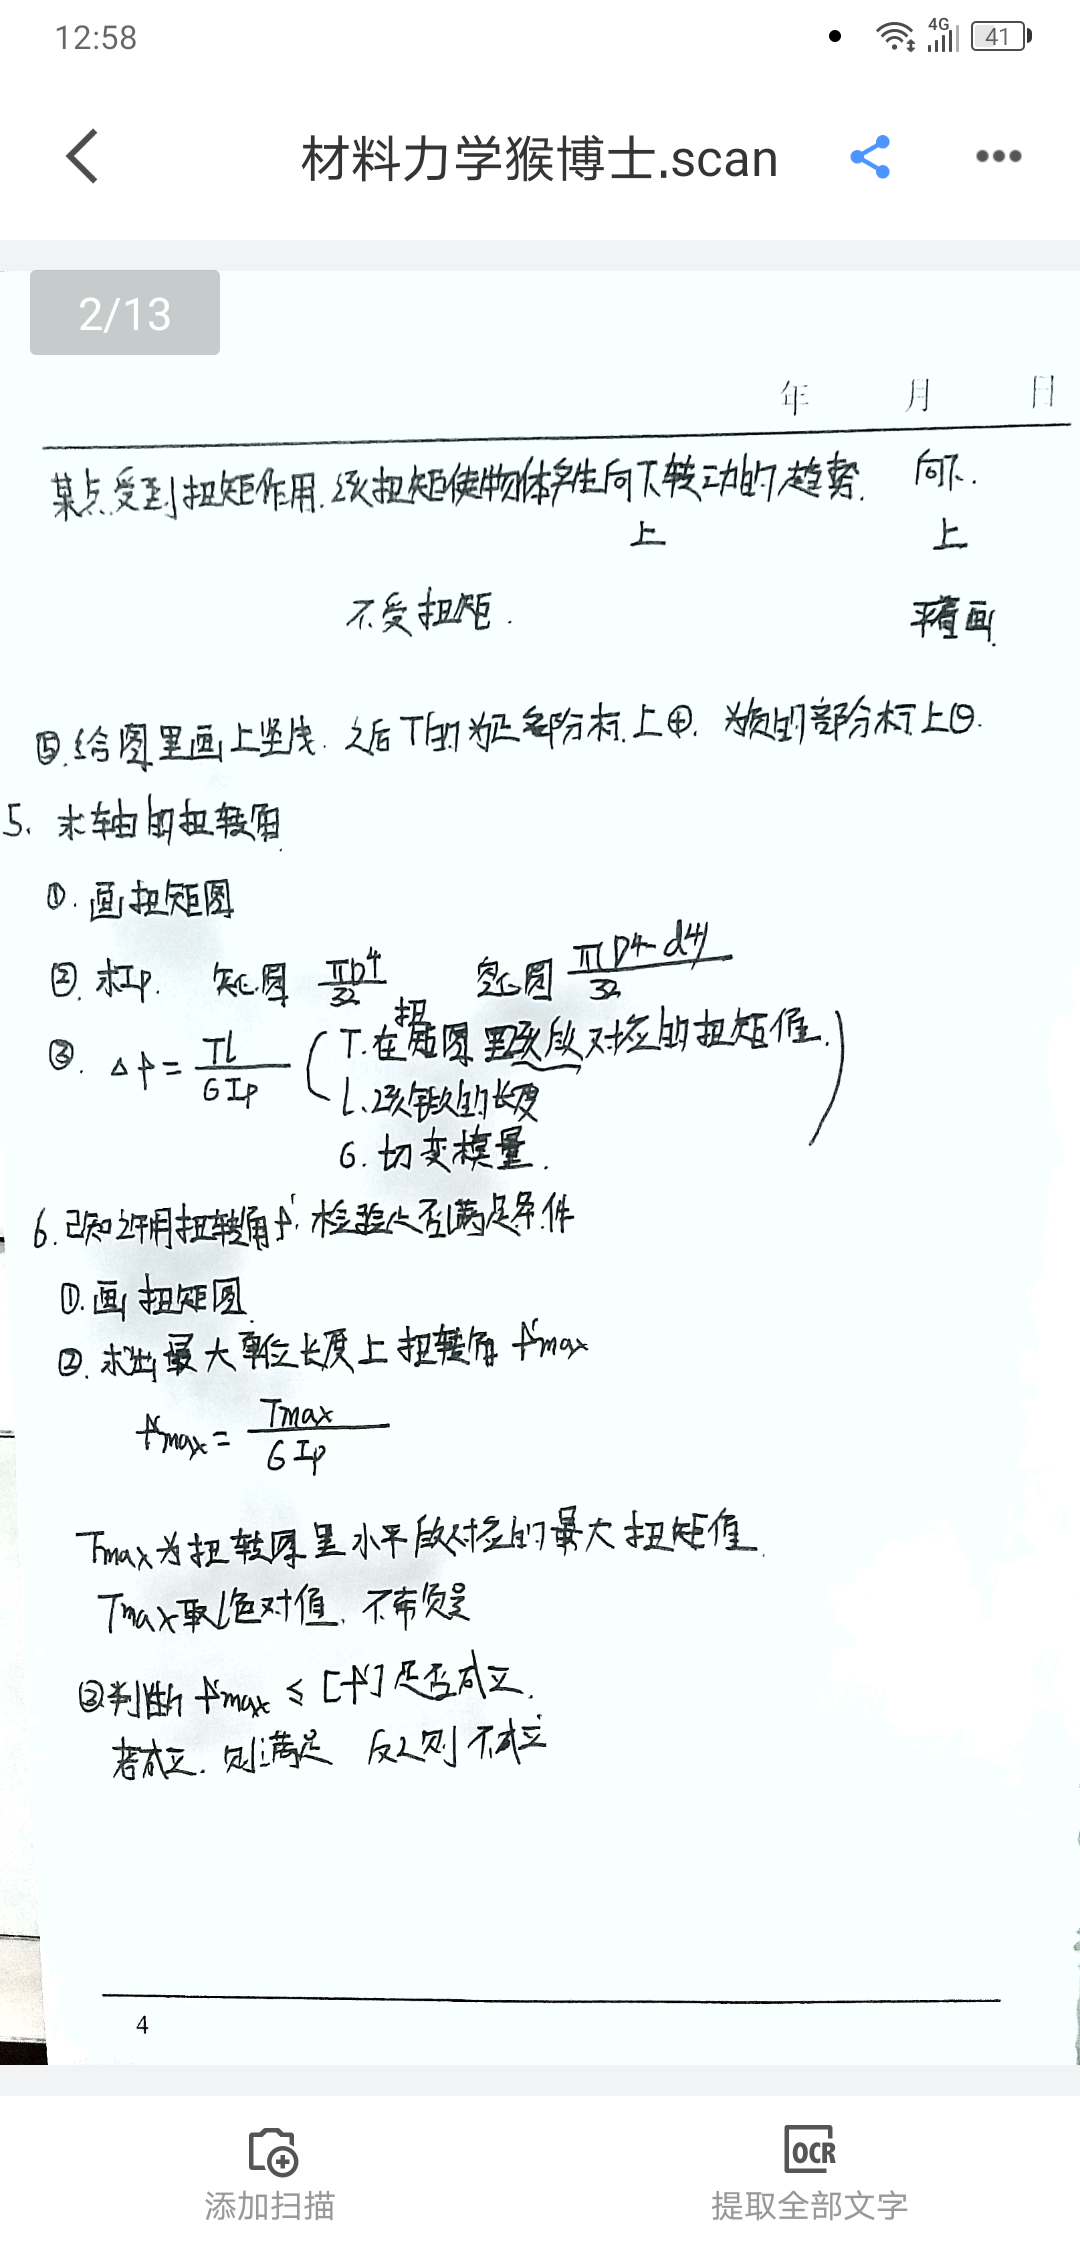 12:58
4G
41
材料力学猴博士.scan
2/13
年 月 日
某点受到扭矩作用.该扭矩使物体产生向下转动的趋势. 向下.
上 上
不受扭矩. 平着画.
⑤.给图里画上竖线.之后T的为正部分标上⊕.为负的部分标上⊖.
5. 求轴的扭转角
①.画扭矩图
②.求Ip. 实心圆 πD⁴/32 空心圆 π(D⁴-d⁴)/32
③. Δφ = Tl/GIp (T.在扭矩图里该段对应的扭矩值.
l.该段的长度
G.切变模量.)
6.已知许用扭转角φ'.检验是否满足条件
①.画扭矩图
②.求出最大单位长度上扭转角φ'max
φ'max = Tmax/GIp
Tmax为扭转图里水平段对应的最大扭矩值.
Tmax取绝对值.不带负号
③判断φ'max ≤ [φ']是否成立.
若成立.则满足 反之则不成立
4
添加扫描
OCR
提取全部文字